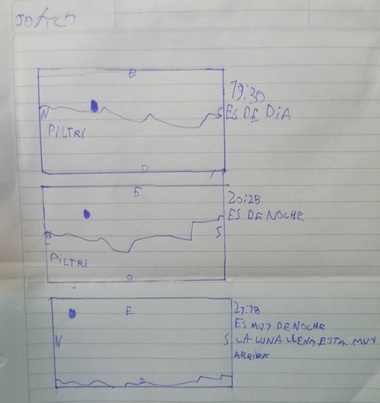 E
19:30
N
S ES DE DIA
PILTRI
O
E
20:25
ES DE NOCHE
N
S
PILTRI
O
E
21:18
ES MUY DE NOCHE
N
S LA LUNA LLENA ESTA MUY
ARRIBA
O